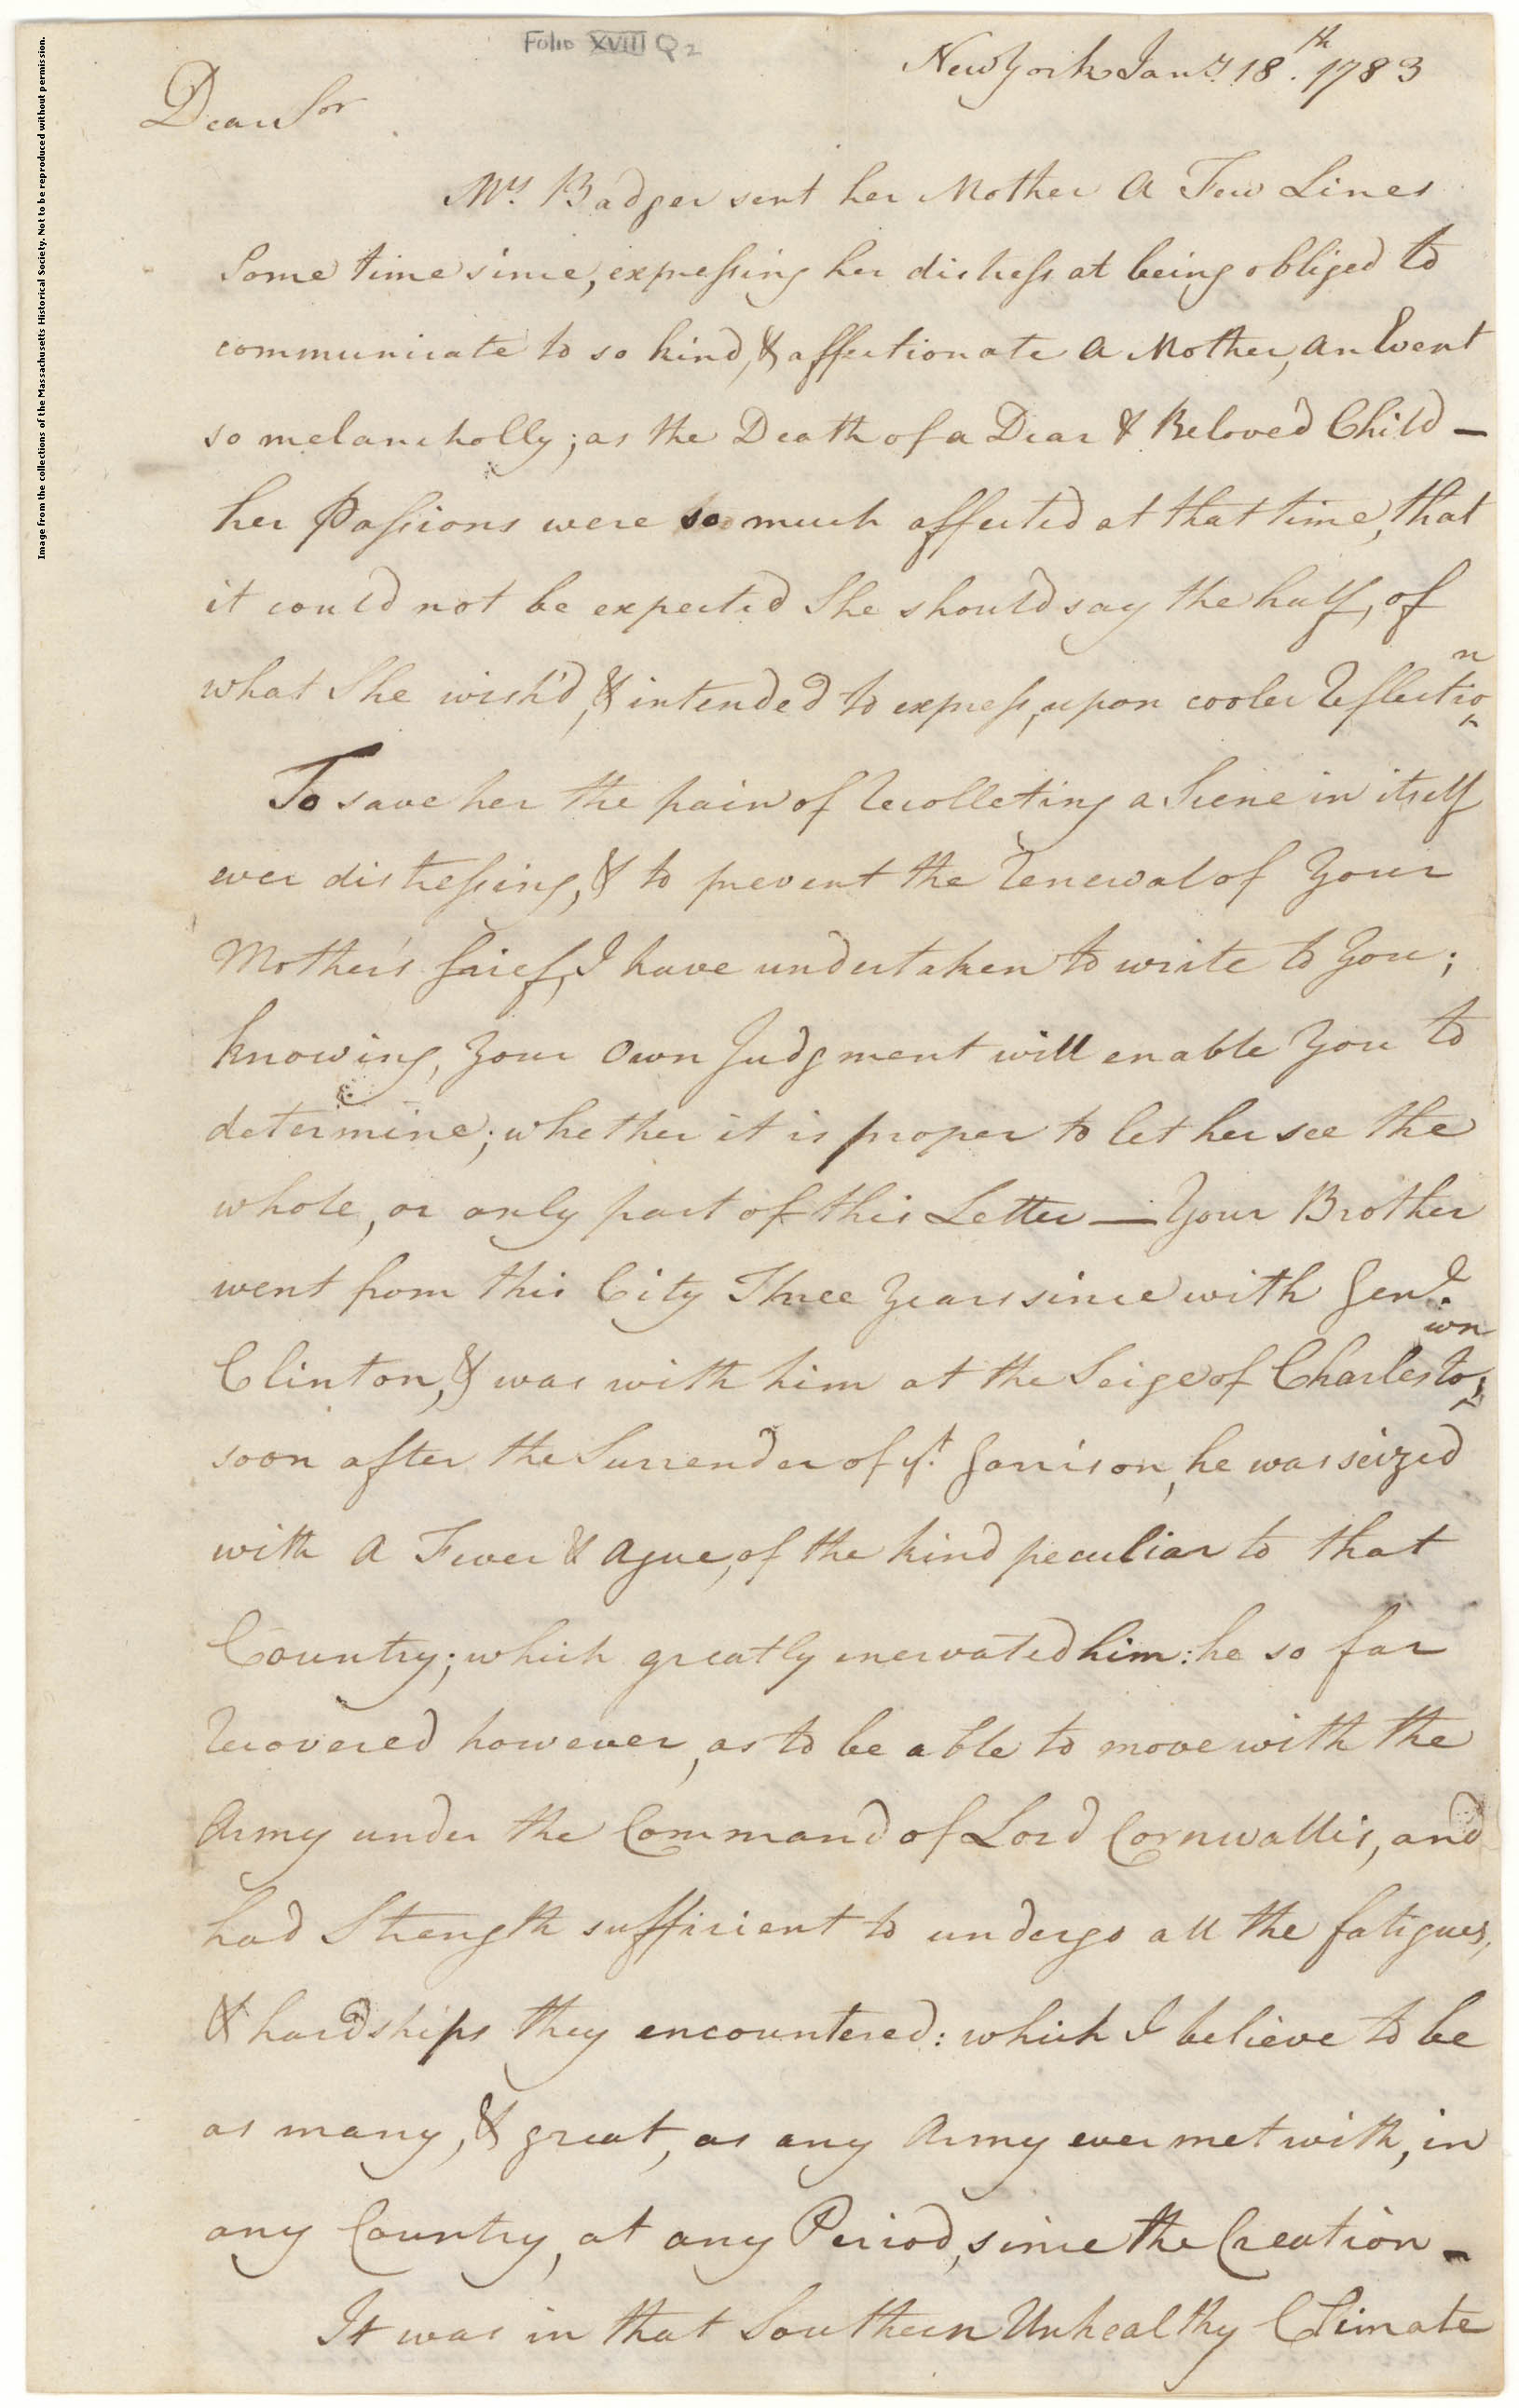 Folio XVIII Q2
New York Jany. 18th. 1783
Dear Sor
Mrs. Badger sent her Mother A Few Lines
Some time since, expressing her distress at being obliged to
communicate to so kind, & affectionate A Mother, an Event
so melancholly; as the Death of a Dear & Beloved Child —
her Passions were so much affected at that time, that
it could not be expected She should say the half, of
what She wish'd, & intended to express, upon cooler Reflection
To save her the pain of Recollecting a Scene in itself
ever distressing, & to prevent the Renewal of Your
Mother's Grief, I have undertaken to write to You;
knowing, Your Own Judgment will enable You to
determine; whether it is proper to let her see the
whole, or only part of this Letter — Your Brother
went from this City Three Years since with Genl.
Clinton, & was with him at the Seige of Charlestown;
soon after the Surrender of yt. Garrison, he was seized
with A Fever & Ague, of the kind peculiar to that
Country; which greatly enervated him: he so far
Recovered however, as to be able to move with the
Army under the Command of Lord Cornwallis, and
had Strength sufficient to undergo all the fatigues,
& hardships they encountered: which I believe to be
as many, & great, as any Army ever met with, in
any Country, at any Period, since the Creation —
It was in that Southern Unhealthy Climate
Image from the collections of the Massachusetts Historical Society. Not to be reproduced without permission.